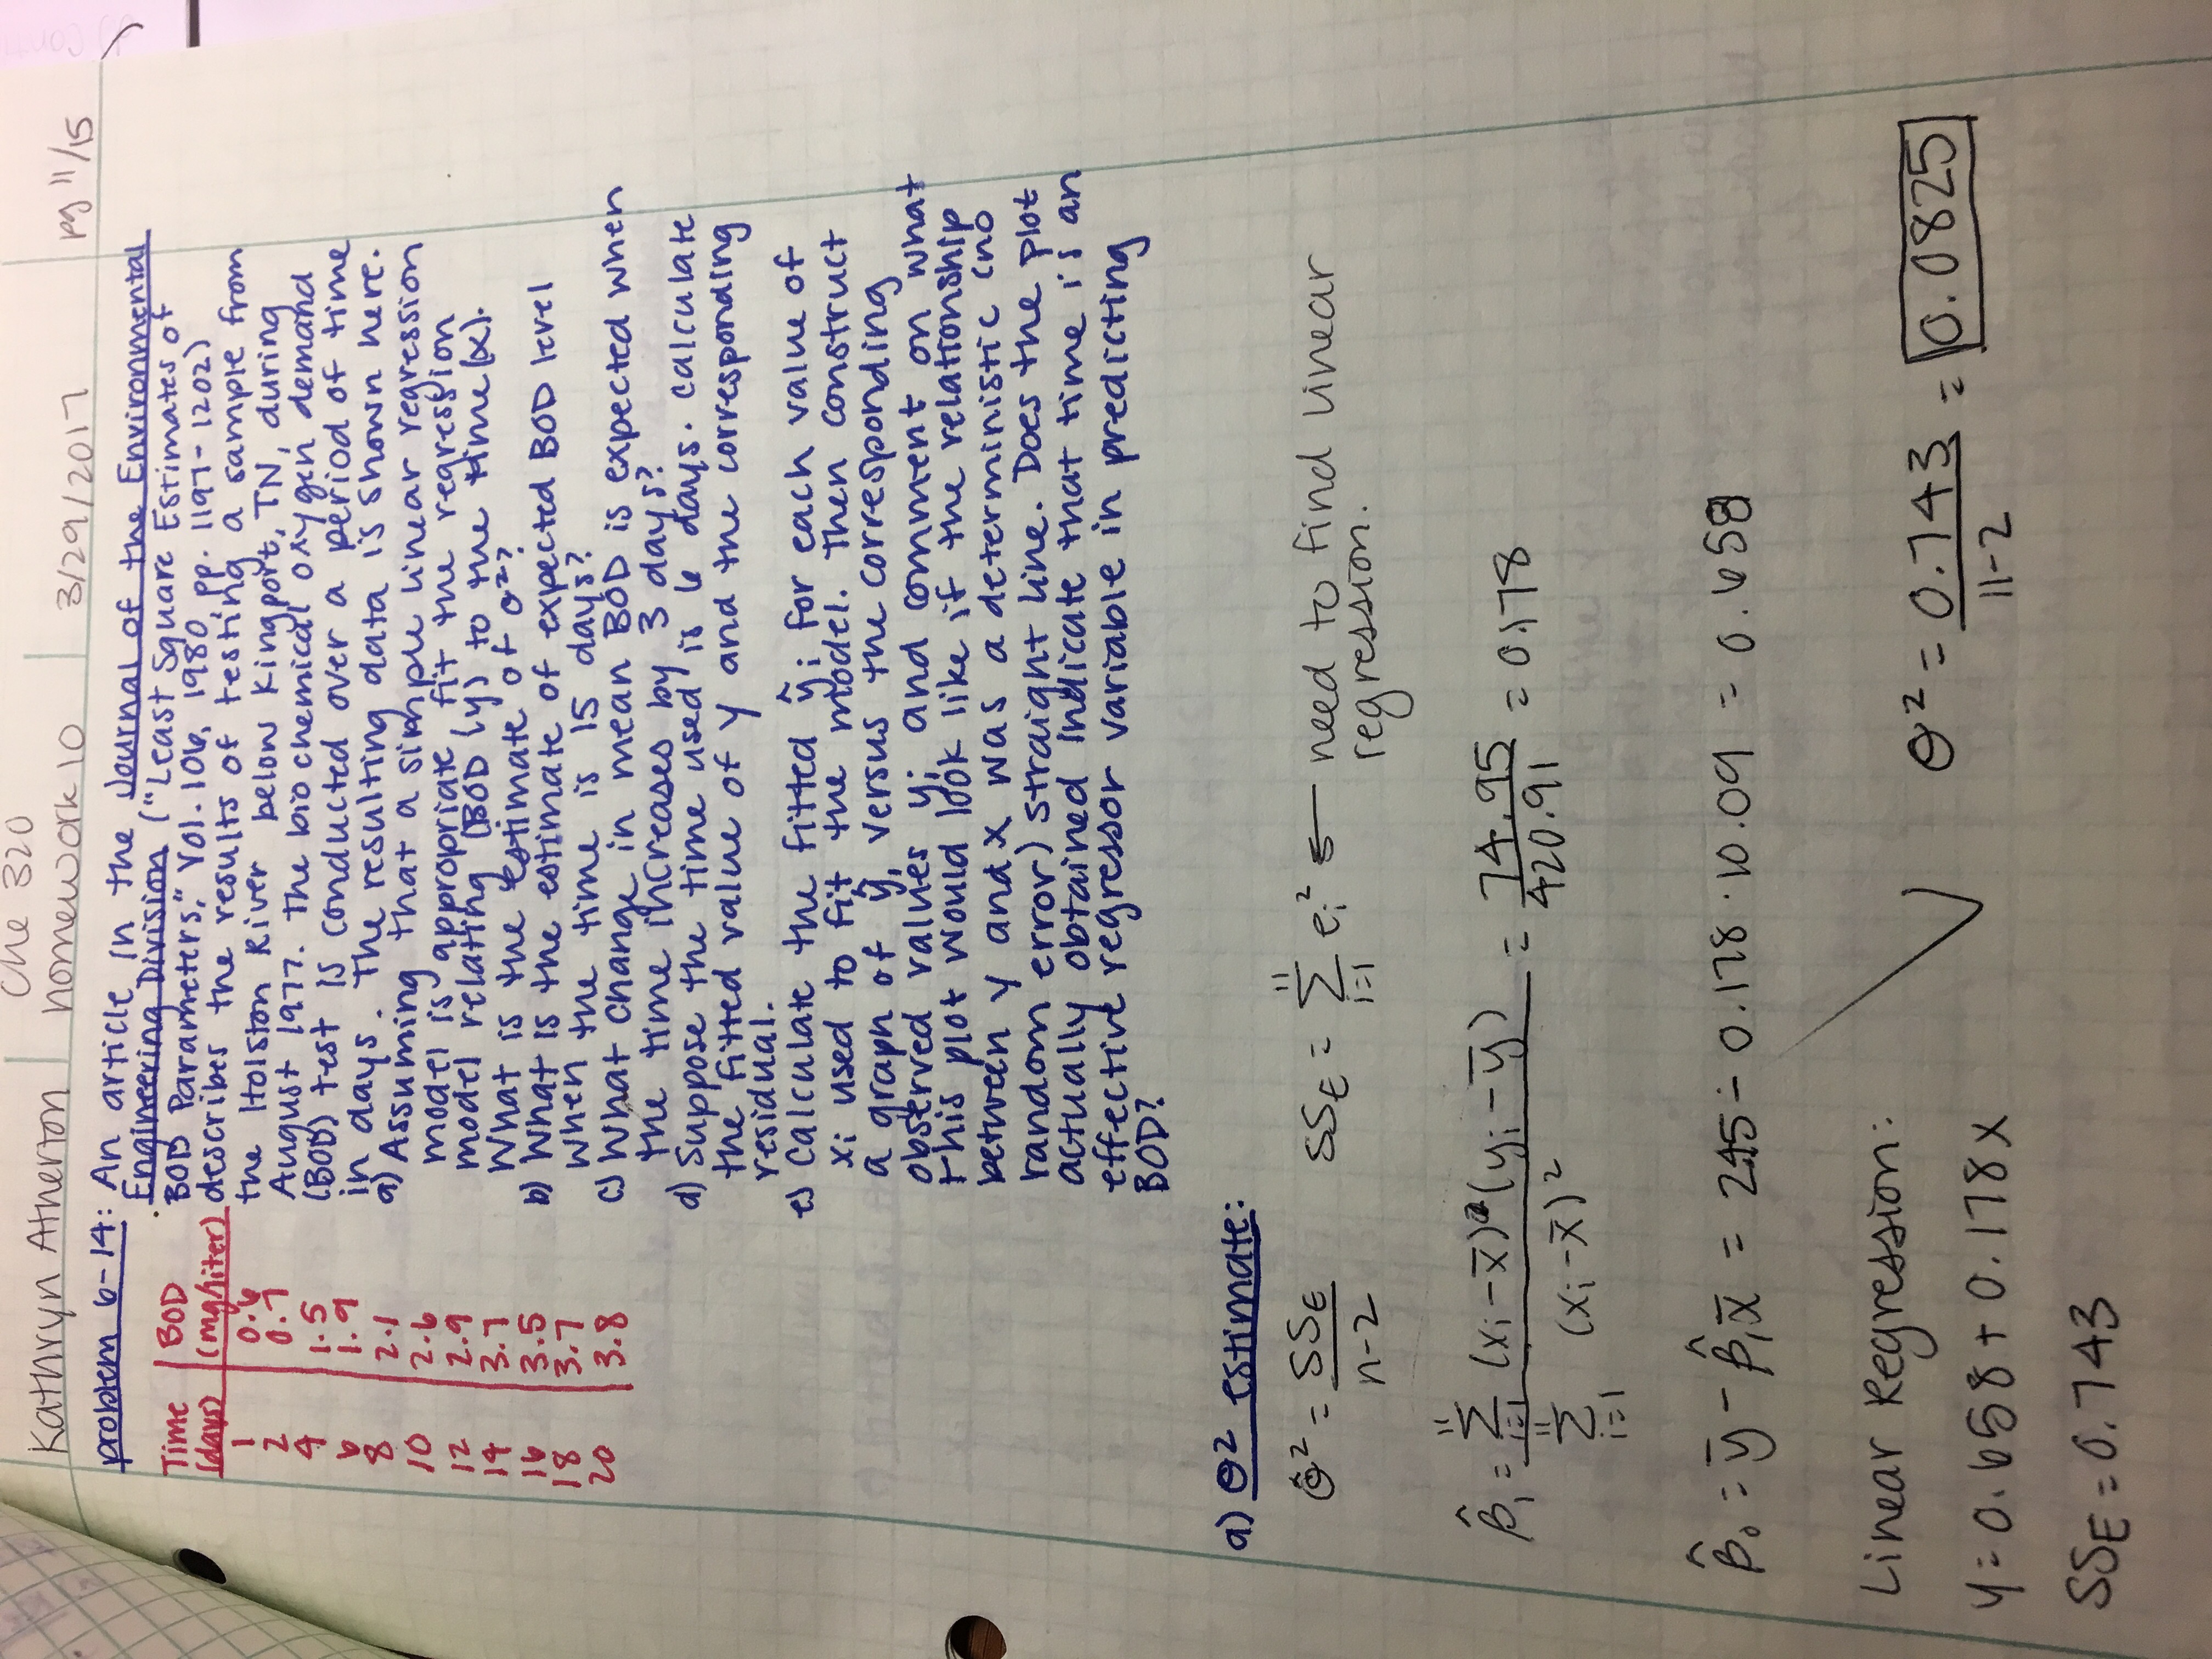 Kathryn Atherton
Che 320
homework 10
3/29/2017
pg 11/15
problem 6-14: An article in the Journal of the Environmental
Engineering Division ("Least Square Estimates of
BOD Parameters," Vol. 106, 1980, pp. 1197-1202)
describes the results of testing a sample from
the Holston River below Kingport, TN, during
August 1977. The biochemical oxygen demand
(BOD) test is conducted over a period of time
in days. The resulting data is shown here.
Time (days) | BOD (mg/liter)
1 | 0.6
2 | 0.7
4 | 1.5
6 | 1.9
8 | 2.1
10 | 2.6
12 | 2.9
14 | 3.7
16 | 3.5
18 | 3.7
20 | 3.8
a) Assuming that a simple linear regression
model is appropriate, fit the regression
model relating (BOD (y) to the time (x).
What is the estimate of σ²?
b) What is the estimate of expected BOD level
when the time is 15 days?
c) What change in mean BOD is expected when
the time increases by 3 days?
d) Suppose the time used is 6 days. Calculate
the fitted value of y and the corresponding
residual.
e) Calculate the fitted ŷi for each value of
xi used to fit the model. Then construct
a graph of ŷi versus the corresponding
observed values yi and comment on what
this plot would look like if the relationship
between y and x was a deterministic (no
random error) straight line. Does the plot
actually obtained indicate that time is an
effective regressor variable in predicting
BOD?
a) θ² estimate:
θ̂² = SSE / n-2
SSE = Σ(i=1 to 11) ei² ← need to find linear
regression.
β̂1 = Σ(i=1 to 11) (xi - x̄)(yi - ȳ) / Σ(i=1 to 11) (xi - x̄)² = 74.95 / 420.91 = 0.178
β̂0 = ȳ - β̂1x̄ = 2.45 - 0.178 · 10.09 = 0.658
Linear Regression:
y = 0.658 + 0.178x
SSE = 0.743
θ² = 0.743 / 11-2 = 0.0825